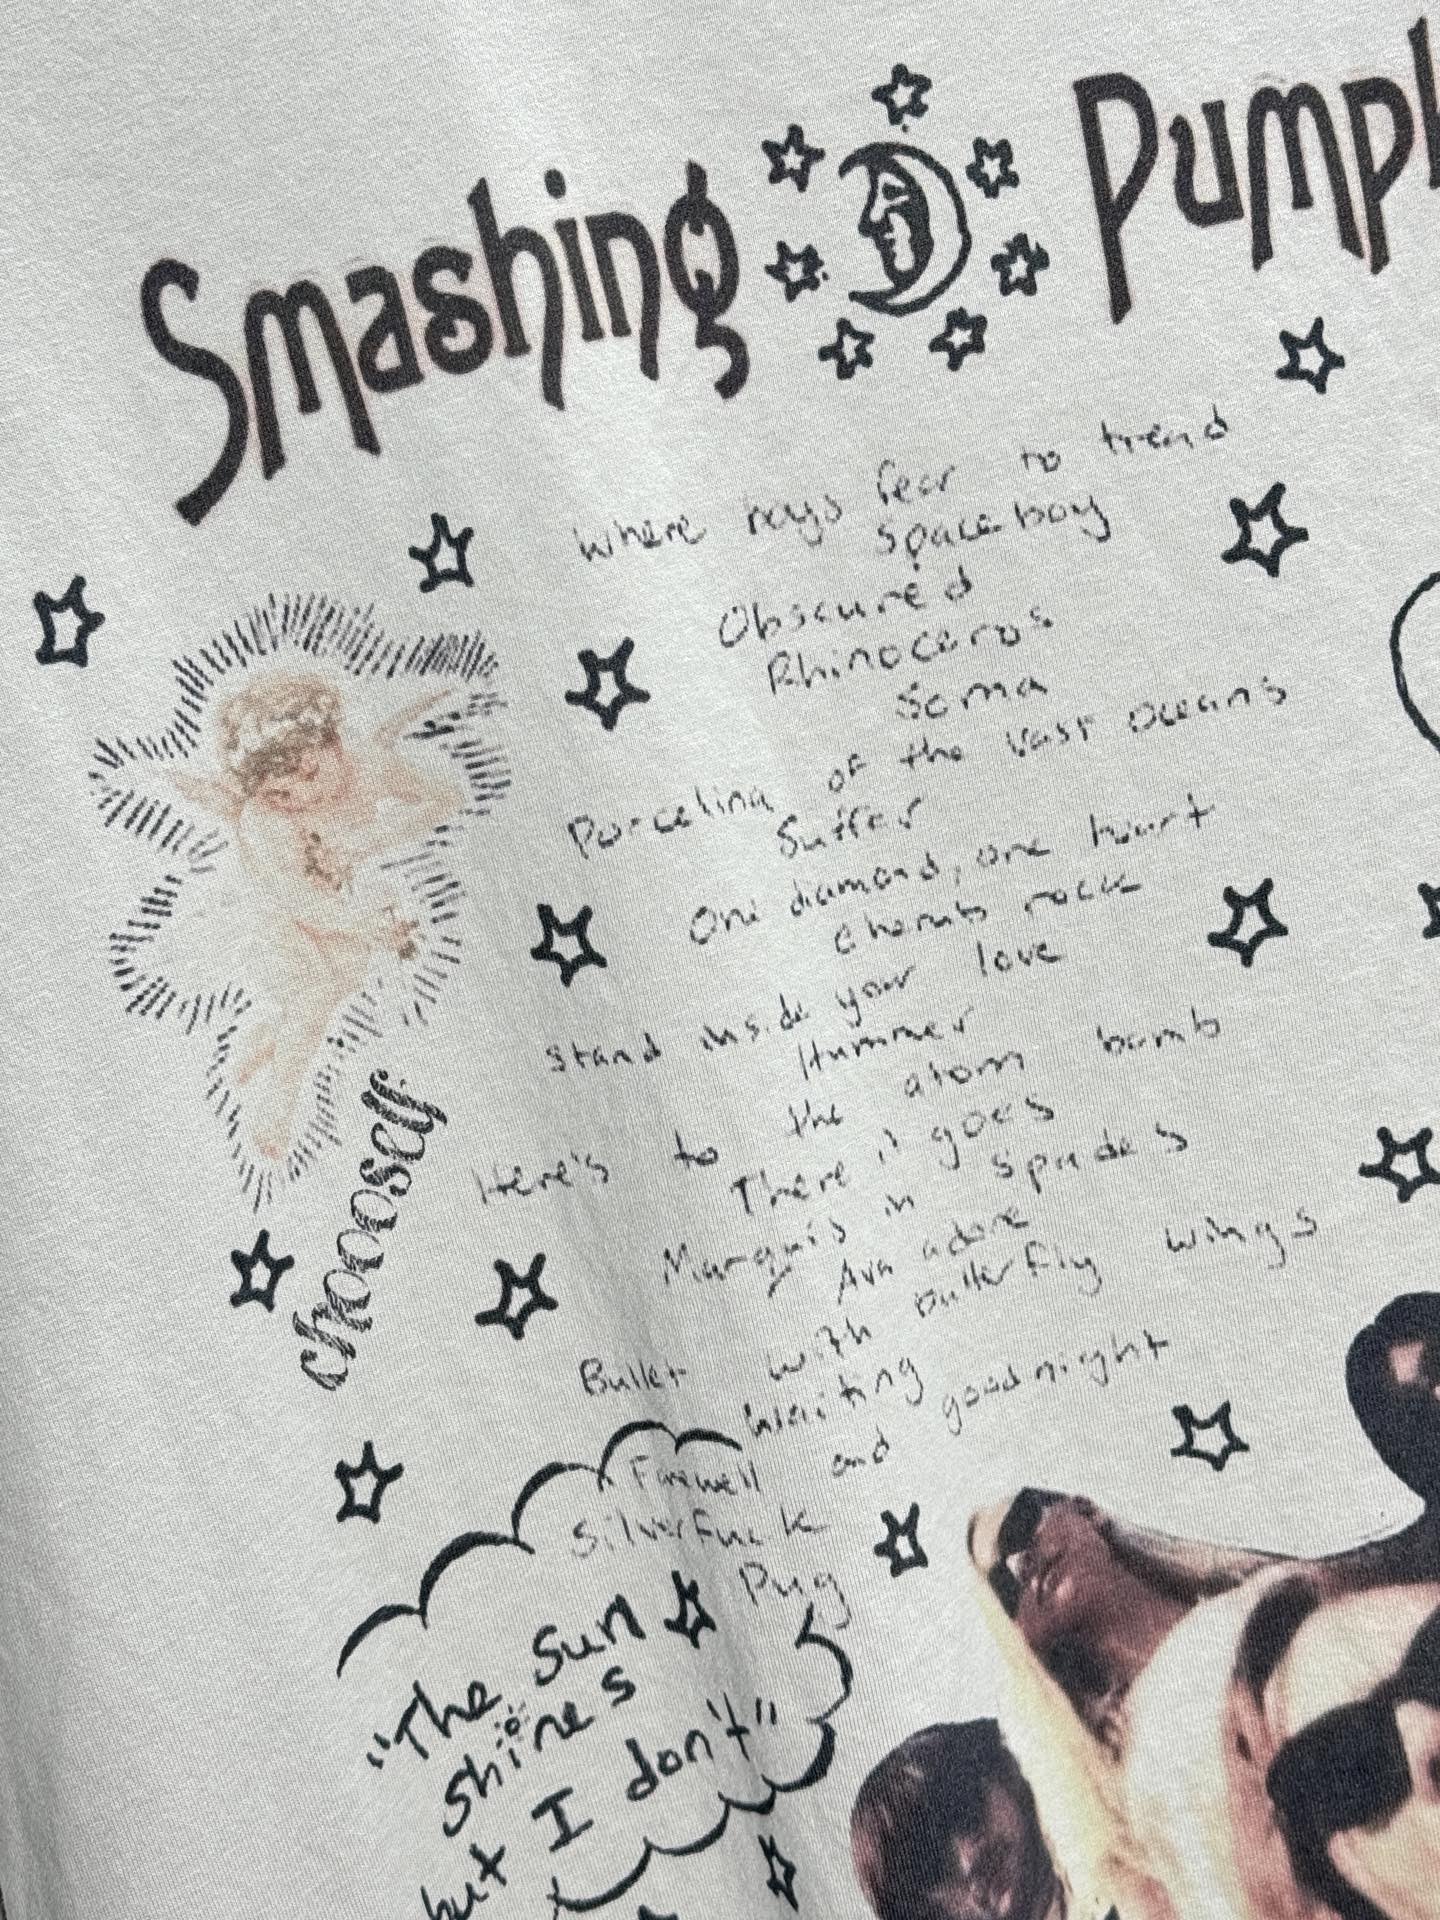 Smashing Pumpk
Where boys fear to tread
Spaceboy
Obscured
Rhinoceros
Soma
Porcelina of the vast oceans
Suffer
One diamond, one heart
cherub rock
stand inside your love
Hummer
Here's to the atom bomb
There it goes
Marquis in spades
Ava adore
Bullet with butterfly wings
Waiting
Farewell and goodnight
Silverfuck
Pug
chooself
"The sun
shines
but I don't"